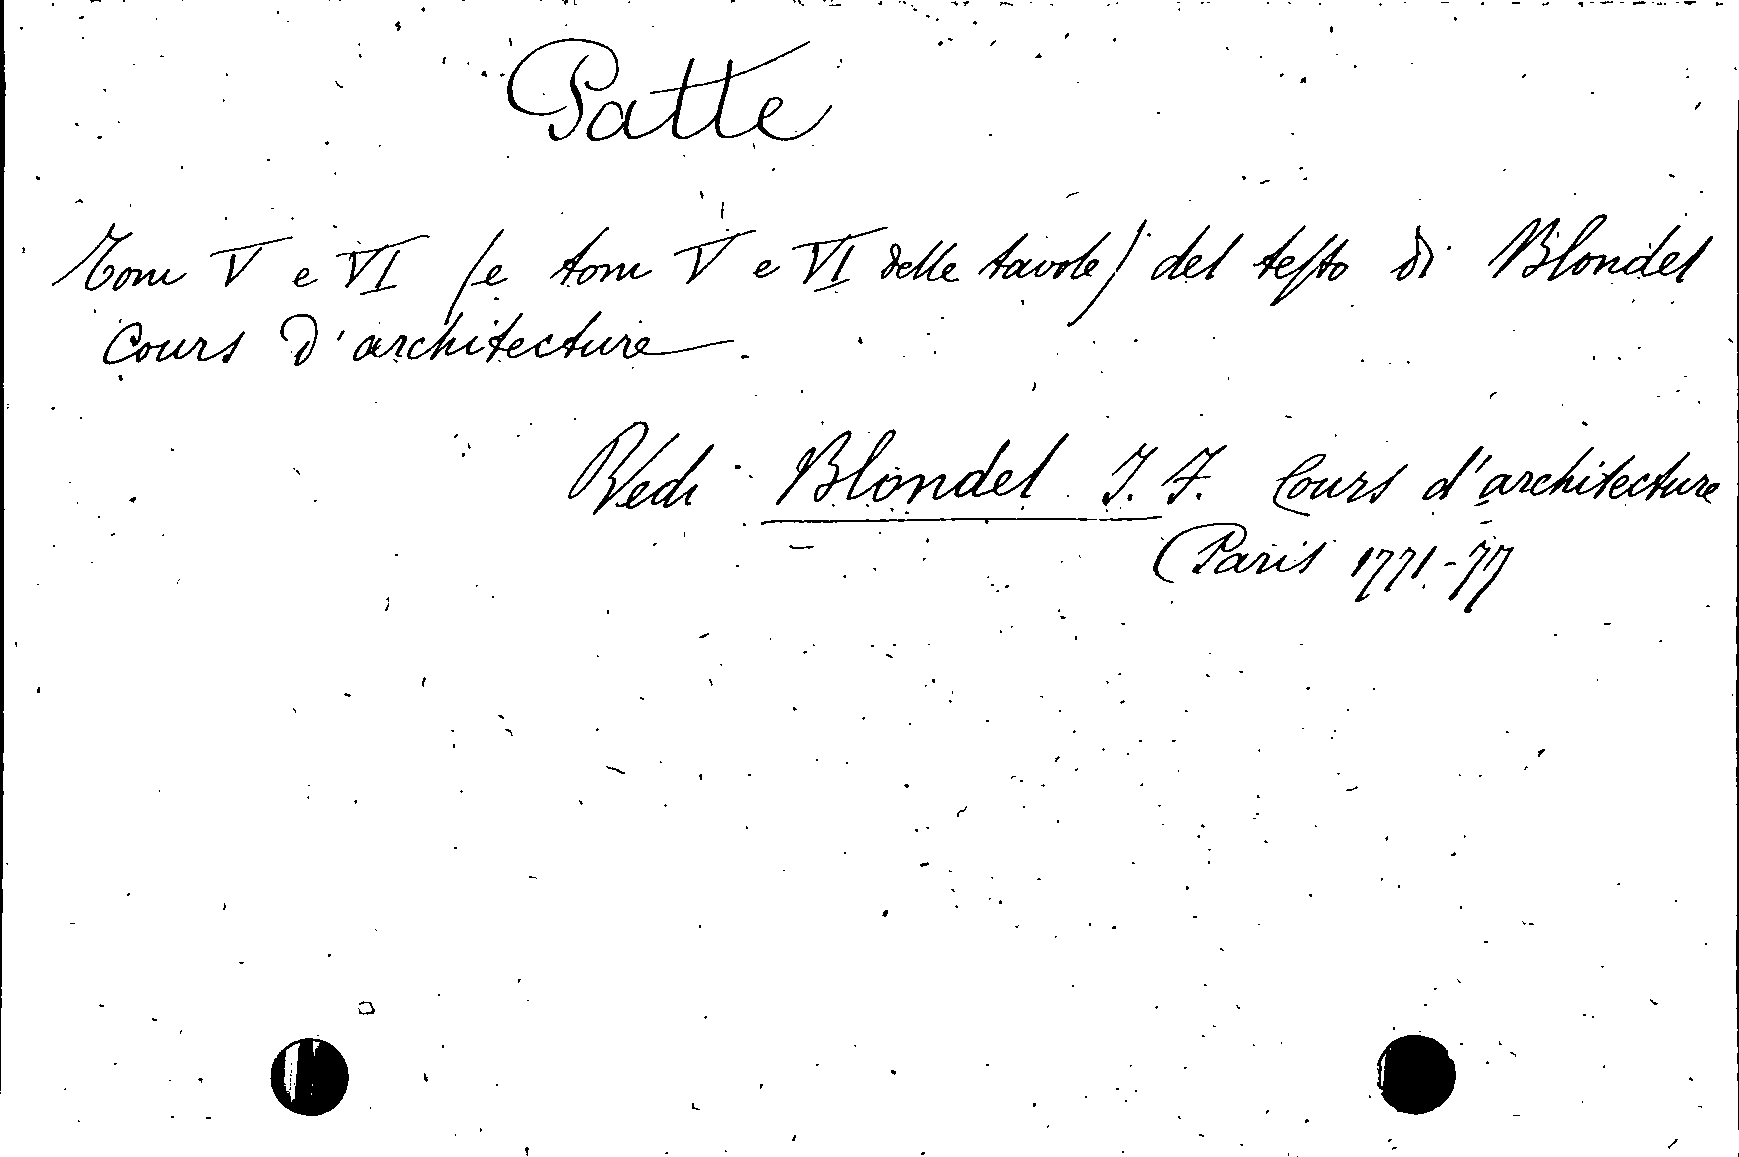 Patte
Tomi V e VI (e tomi V e VI delle tavole) del testo di Blondel
Cours d'architecture.
Vedi Blondel J. F. Cours d'architecture
(Paris 1771-77